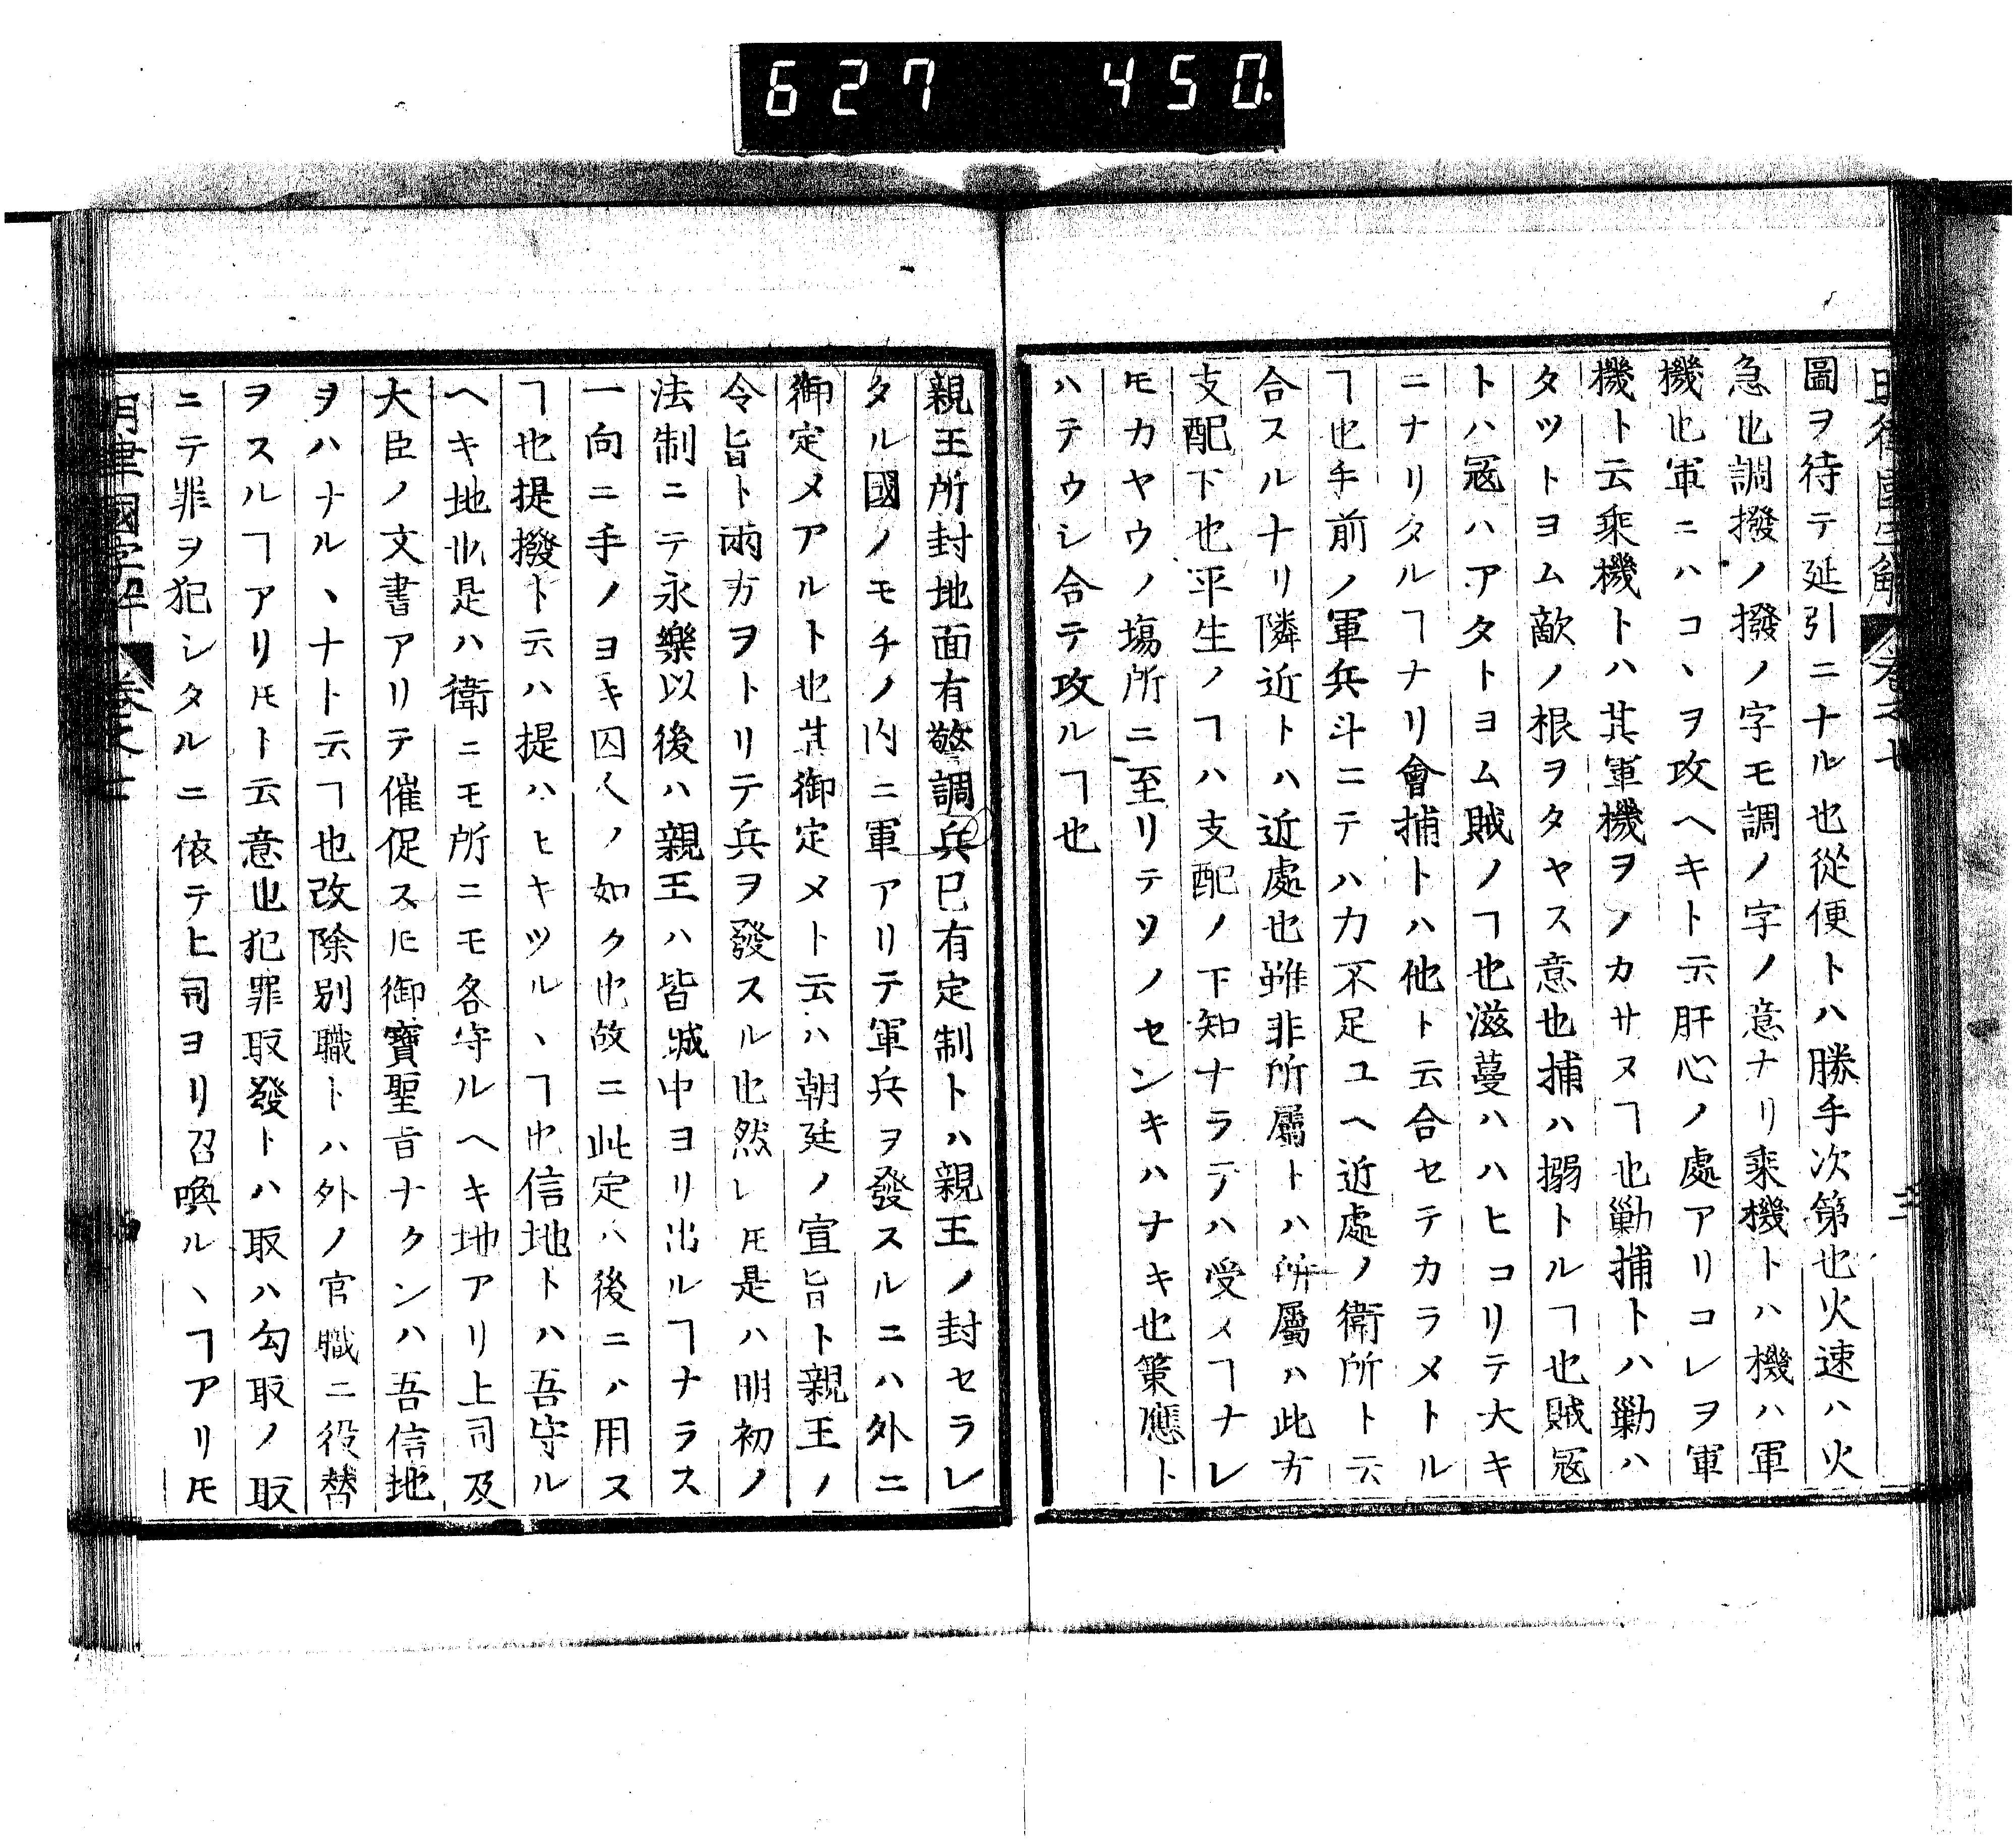 627 450
圖ヲ待テ延引ニナル也從便トハ勝手次第也火速ハ火
急也調撥ノ撥ノ字モ調ノ字ノ意ナリ乘機トハ機ハ軍
機也軍ニハコヽヲ攻ヘキト云肝心ノ處アリコレヲ軍
機ト云乘機トハ其軍機ヲノカサヌヿ也勦捕トハ勦ハ
タツトヨム敵ノ根ヲタヤス意也捕ハ搦トルヿ也賊冦
トハ冦ハアタトヨム賊ノヿ也滋蔓ハハヒコリテ大キ
ニナリタルヿナリ會捕トハ他ト云合セテカラメトル
ヿ也手前ノ軍兵斗ニテハ力不足ユヘ近處ノ衛所ト云
合スルナリ隣近トハ近處也雖非所屬トハ所屬ハ此方
支配下也平生ノヿハ支配ノ下知ナラデハ受メヿナレ
𪜈カヤウノ塲所ニ至リテソノセンキハナキ也策應ト
ハテウシ合テ攻ルヿ也
親王所封地面有警調兵已有定制トハ親王ノ封セラレ
タル國ノモチノ内ニ軍アリテ軍兵ヲ發スルニハ外ニ
御定メアルト也其御定メト云ハ朝廷ノ宣旨ト親王ノ
令旨ト兩方ヲトリテ兵ヲ發スル也然レ𪜈是ハ明初ノ
法制ニテ永樂以後ハ親王ハ皆城中ヨリ出ルヿナラス
一向ニ手ノヨキ囚人ノ如ク也故ニ此定ハ後ニハ用ス
ヿ也提撥ト云ハ提ハヒキツルヽヿ也信地トハ吾守ル
ヘキ地也是ハ衛ニモ所ニモ各守ルヘキ地アリ上司及
大臣ノ文書アリテ催促ス𪜈御寶聖旨ナクンハ吾信地
ヲハナルヽナト云ヿ也改除別職トハ外ノ官職ニ役替
ヲスルヿアリ𪜈ト云意也犯罪取發トハ取ハ勾取ノ取
ニテ罪ヲ犯シタルニ依テ上司ヨリ召喚ルヽヿアリ𪜈